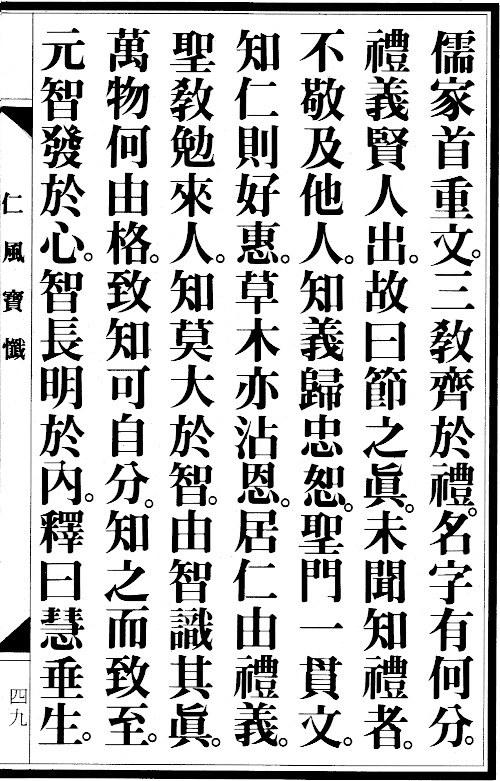 儒家首重文。三教齊於禮。名字有何分。
禮義賢人出。故曰節之眞。未聞知禮者。
不敬及他人。知義歸忠恕。聖門一貫文。
知仁則好惠。草木亦沾恩。居仁由禮義。
聖教勉來人。知莫大於智。由智識其眞。
萬物何由格。致知可自分。知之而致至。
元智發於心。智長明於內。釋曰慧垂生。
仁風寶懺
四九